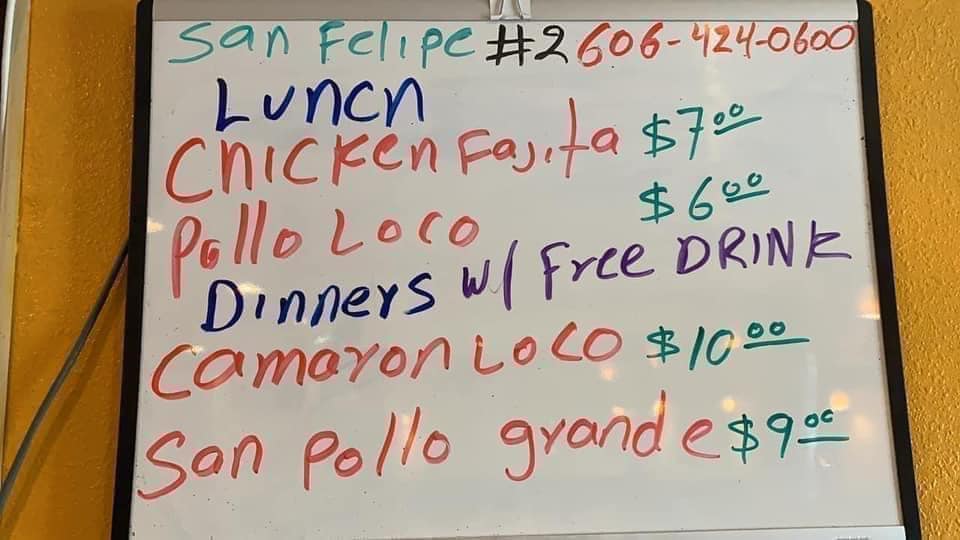 San Felipe #2 606-424-0600
Lunch
Chicken Fajita $7.00
Pollo Loco $6.00
Dinners w/ Free DRINK
Camaron Loco $10.00
San Pollo grande $9.00